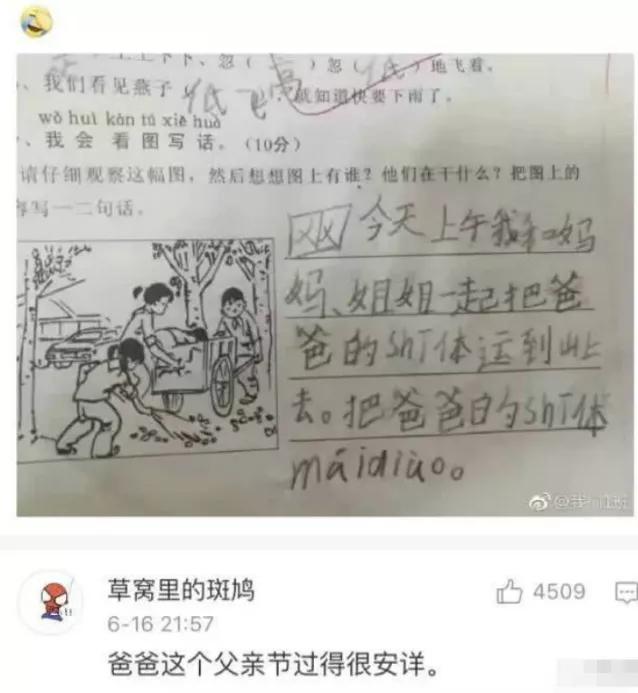 上上下下、忽（高）忽（低）地飞着。
、我们看见燕子低飞，就知道快要下雨了。
wǒ huì kàn tú xiě huà
、我会看图写话。（10分）
请仔细观察这幅图，然后想想图上有谁？他们在干什么？把图上的
写一二句话。
今天上午我和妈
妈、姐姐一起把爸
爸的shī体运到山上
去。把爸爸的shī体
máidiào。
草窝里的斑鸠
4509
6-16 21:57
爸爸这个父亲节过得很安详。